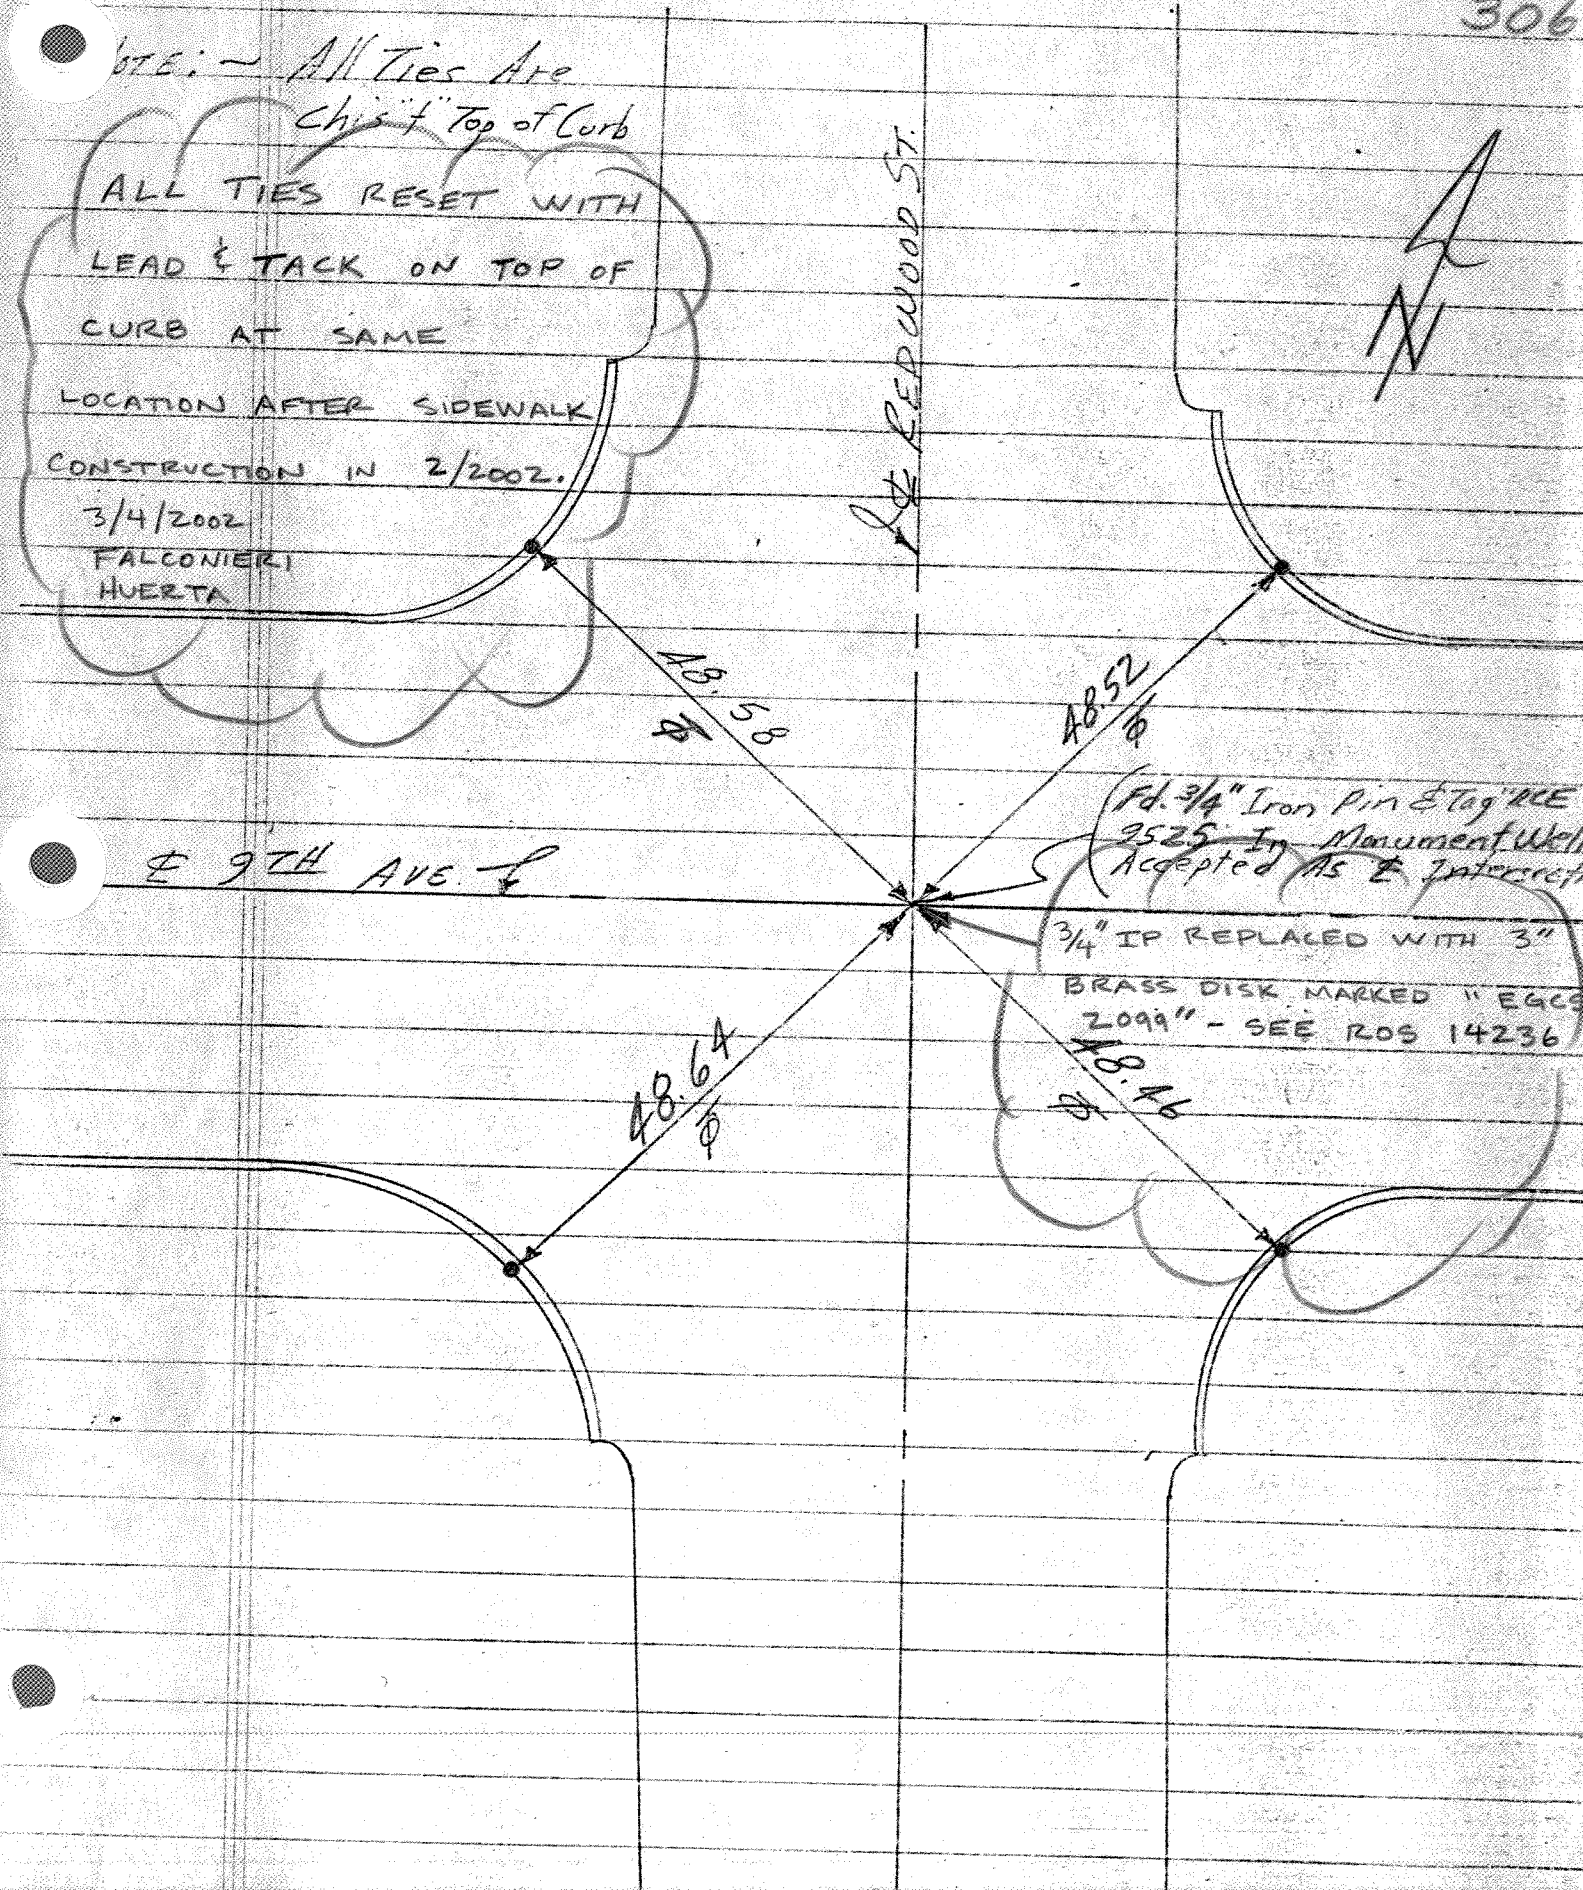 306
NOTE: ~ All Ties Are
Chis "+" Top of Curb
ALL TIES RESET WITH
LEAD & TACK ON TOP OF
CURB AT SAME
LOCATION AFTER SIDEWALK
CONSTRUCTION IN 2/2002.
3/4/2002
FALCONIERI
HUERTA
℄ REDWOOD ST.
N
48.58
48.52
(Fd. 3/4" Iron Pin & Tag "RCE
9525" In Monument Well
Accepted As ℄
℄ 9TH AVE.
3/4" IP REPLACED WITH 3"
BRASS DISK MARKED "EGCS
2099" - SEE ROS 14236
48.64
48.46